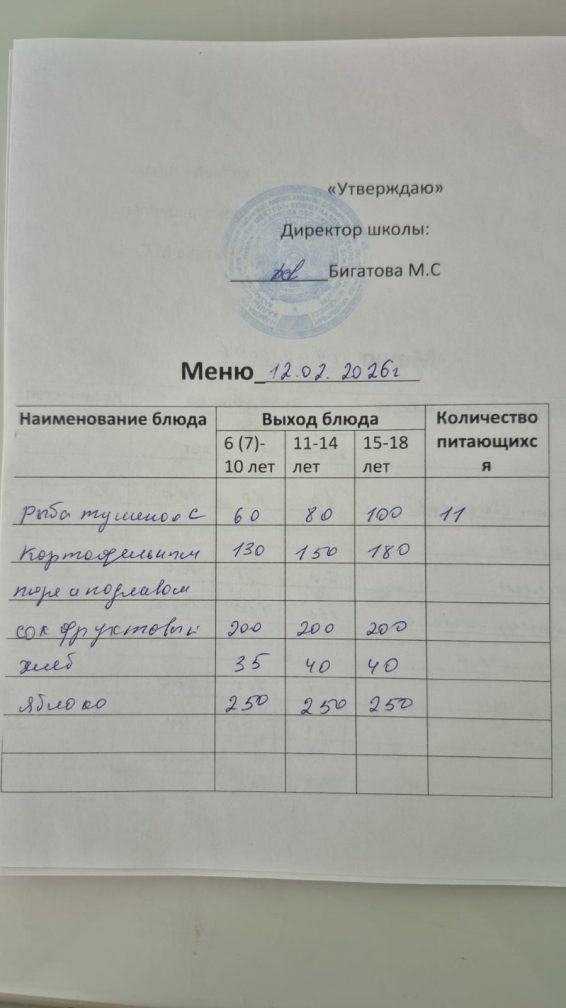 «Утверждаю»
Директор школы:
Бигатова М.С
Меню 12.02. 2026г
Наименование блюда Выход блюда Количество питающихся
6 (7)-10 лет 11-14 лет 15-18 лет
Рыба тушеная с 60 80 100 11
картофельным 130 150 180
пюре и подлавом
сок фруктовый 200 200 200
хлеб 35 40 40
яблоко 250 250 250